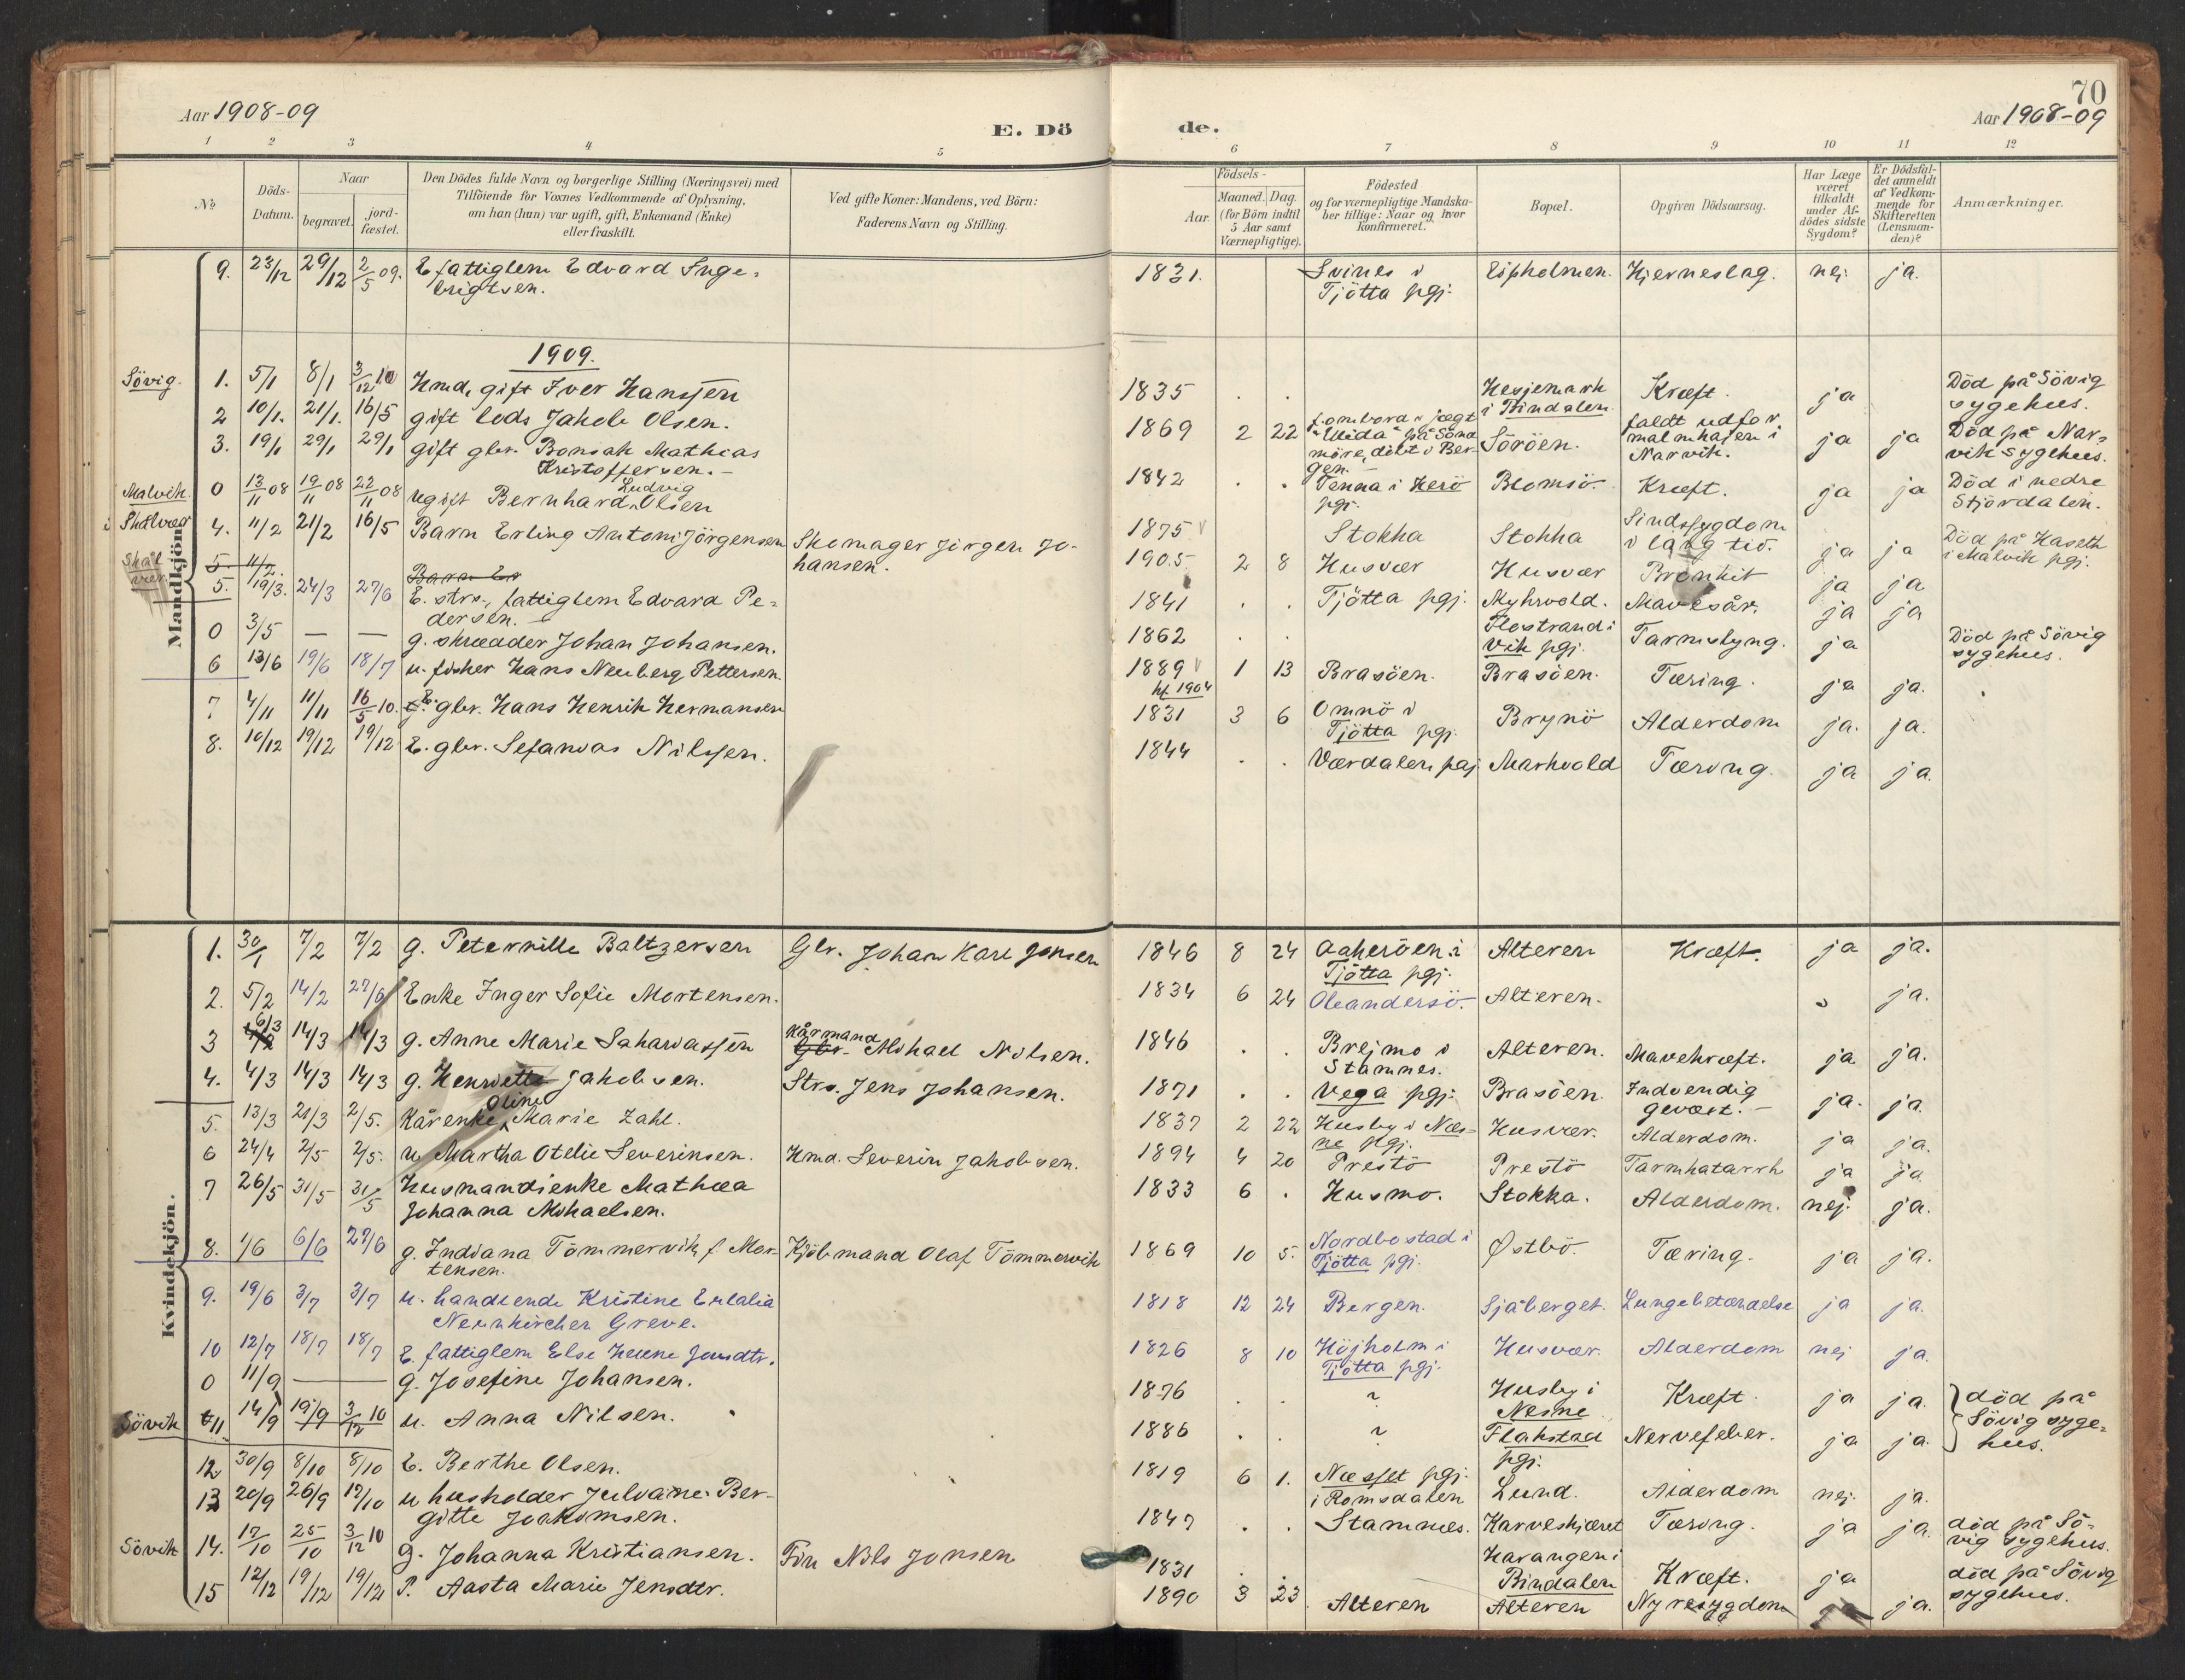 70
Aar 1908-09
E. Dö
de.
Aar 1908-09
1 2 3 4 5 6 7 8 9 10 11 12
No
Döds-
Datum.
Naar
begravet.
jord-
fæstet.
Den Dödes fulde Navn og borgerlige Stilling (Næringsvei) med
Tilföiende for Voxnes Vedkommende af Oplysning,
om han (hun) var ugift, gift, Enkemand (Enke)
eller fraskilt.
Ved gifte Koner: Mandens, ved Börn:
Faderens Navn og Stilling.
Födsels-
Aar.
Maaned. Dag.
(for Börn indtil
5 Aar samt
Værnepligtige).
Födested
og for værnepligtige Mandska-
ber tillige: Naar og hvor
konfirmeret.
Bopæl.
Opgiven Dödsaarsag.
Har Læge
været
tilkaldt
under Af-
dödes sidste
Sygdom?
Er Dödsfal-
det anmeldt
af Vedkom-
mende for
Skifteretten
(Lensman-
den)?
Anmærkninger.
Mandkjön
9. 23/12 29/12 2/5 09. E. fattiglem Edvard Inge-
brigtsen.
1831. Svines i
Tjötta pgj. Hjerneslag. nej ja.
1909.
Sövig. 1. 5/1 8/1 3/12 10 Kmd, gift Iver Hanssen
2 10/1. 21/1. 16/5 gift lods Jakob Olsen.
3. 19/1 29/1 29/1 gift gbr. Mathias
Kristoffersen. -
Malvik. 0 13/11 08 19/11 08 22/11 08 ugift Bernhard Ludvig Olsen
Skålvær 4. 11/2 21/2 16/5 Barn Erling Antoni Jörgensen Skomager Jörgen Jo-
hansen.
Skål-
vær. 5. 11/2.
Barn Er
5. 19/3. 24/3 27/6 E. strs., fattiglem Edvard Pe-
dersen.
0 3/5 — — g. skrædder Johan Johansen.
6 13/6 19/6 18/7 u. fisker Hans Neuberg Pettersen.
7 4/11 11/11 16/5 10. E. gbr. Hans Henrik Hermansen
8. 10/12 19/12 19/12 E. gbr. Sefanias Nilssen.
1835 . . Hesjemark
i Bindalen Kræft. ja Död på Sövig
sygehus.
1869 2 22 ombord i jægt
"Ulida" på Sönd
möre, döbt i Ber-
gen. Söröen. faldt udfor
malmkajen i
Narvik. ja ja Död på Nar-
vik sygehus.
1842 . . Tenna i Herö
pgj. Blomsö. Kræft. ja ja Död i nedre
Stjördalen.
1875 Stokka Stokka Sindssygdom
i lang tid. ja ja Död på Haseth
i Malvik pgj.
1905. 2 8 Husvær Husvær Bronkit ja ja
1841 . . Tjötta pgj. Myhrvold. Mavesår. ja ja
1862 . . Flostrand i
Vik pgj. Tarmslyng. ja Död på Sövig
sygehus.
1889 1 13 Brasöen. Brasöen. Tæring. ja ja.
kf. 1904
1831 3 6 Omnö i
Tjötta pgj. Brynö Alderdom ja. ja.
1844 . . Værdalen pgj. Markvold Tæring. ja ja.
Kvindekjön.
1. 30/1 7/2 7/2 g. Peternille Baltzersen Gbr. Johan Karl Jonsen
2. 5/2 14/2 27/6 Enke Inger Sofie Mortensen.
3 6/3 14/3 14/3 g. Anne Marie Sahariassen Kårmand Gbr. Mikael Nilsen.
4. 4/3 14/3 14/3 g. Henriette Jakobsen. Strs. Jens Johansen.
5. 13/3 21/3 2/5. Kårenke Oline Marie Zahl.
6 24/4 2/5 2/5. u. Martha Otelie Severinsen. Kmd. Severin Jakobsen.
7 26/5 31/5 31/5 Husmandsenke Mathea
Johanna Mikaelsen.
8. 1/6 6/6 27/6 g. Indiana Tömmervik f. Mor-
tensen. Kjöbmand Olaf Tömmervik
9. 19/6 3/7 3/7 u. handlende Kristine Eulalia
Neunkirchen Greve.
10 12/7 18/7 18/7 E. fattiglem Else Helene Jensdtr.
0 11/9 — g. Josefine Johansen.
Sövik 11 14/9 19/9 3/12 10 u. Anna Nilsen.
12 30/9 8/10 8/10 E. Berthe Olsen.
13 20/9 26/9 17/10 u husholder Julvaine Ber-
gitte Joakimsen.
Sövik 14. 17/10 25/10 3/12 10 g. Johanna Kristiansen. Fin Nils Jonsen
15 12/12 19/12 19/12 P. Aasta Marie Jensdtr.
1846 8 24 Aakeröen i
Tjötta pgj. Alteren Kræft. ja ja.
1834 6 24 Oleandersö. Alteren. ja.
1846 . . Brejmo i
Stamnes. Alteren. Mavekræft. ja ja.
1871 . . Vega pgj. Brasöen. Indvendig
gevæst. - ja. ja.
1837 2 22 Husby i Næs-
ne pgj. Husvær. Alderdom. ja ja.
1894 4 20 Prestö Prestö Tarmkatarrh ja ja.
1833 6 . Husmo. Stokka. Alderdom. nej. ja.
1869 10 5. Nordbostad i
Tjötta pgj. Østbö. Tæring. ja ja.
1818 12 24 Bergen. Sjåberget. Lungebetændelse ja ja.
1826 8 10 Höjholm i
Tjötta pgj. Husvær. Alderdom nej ja.
1876 . . ? Husby i
Nesne Kræft. ja ja. död på
Sövig syge-
hus.
1886 . . ? Flakstad
pgj. Nervefeber. ja ja.
1819 6 1. Næsset pgj.
i Romsdalen Lund. Alderdom nej. ja.
1847 . . Stamnes. Karveskjæret Tæring. ja ja. död på Sö-
vig sygehus.
1831 . . Harangen i
Bindalen Kræft. ja död på Sövig
sygehus.
1890 3 23 Alteren Alteren Nyresygdom ja ja.